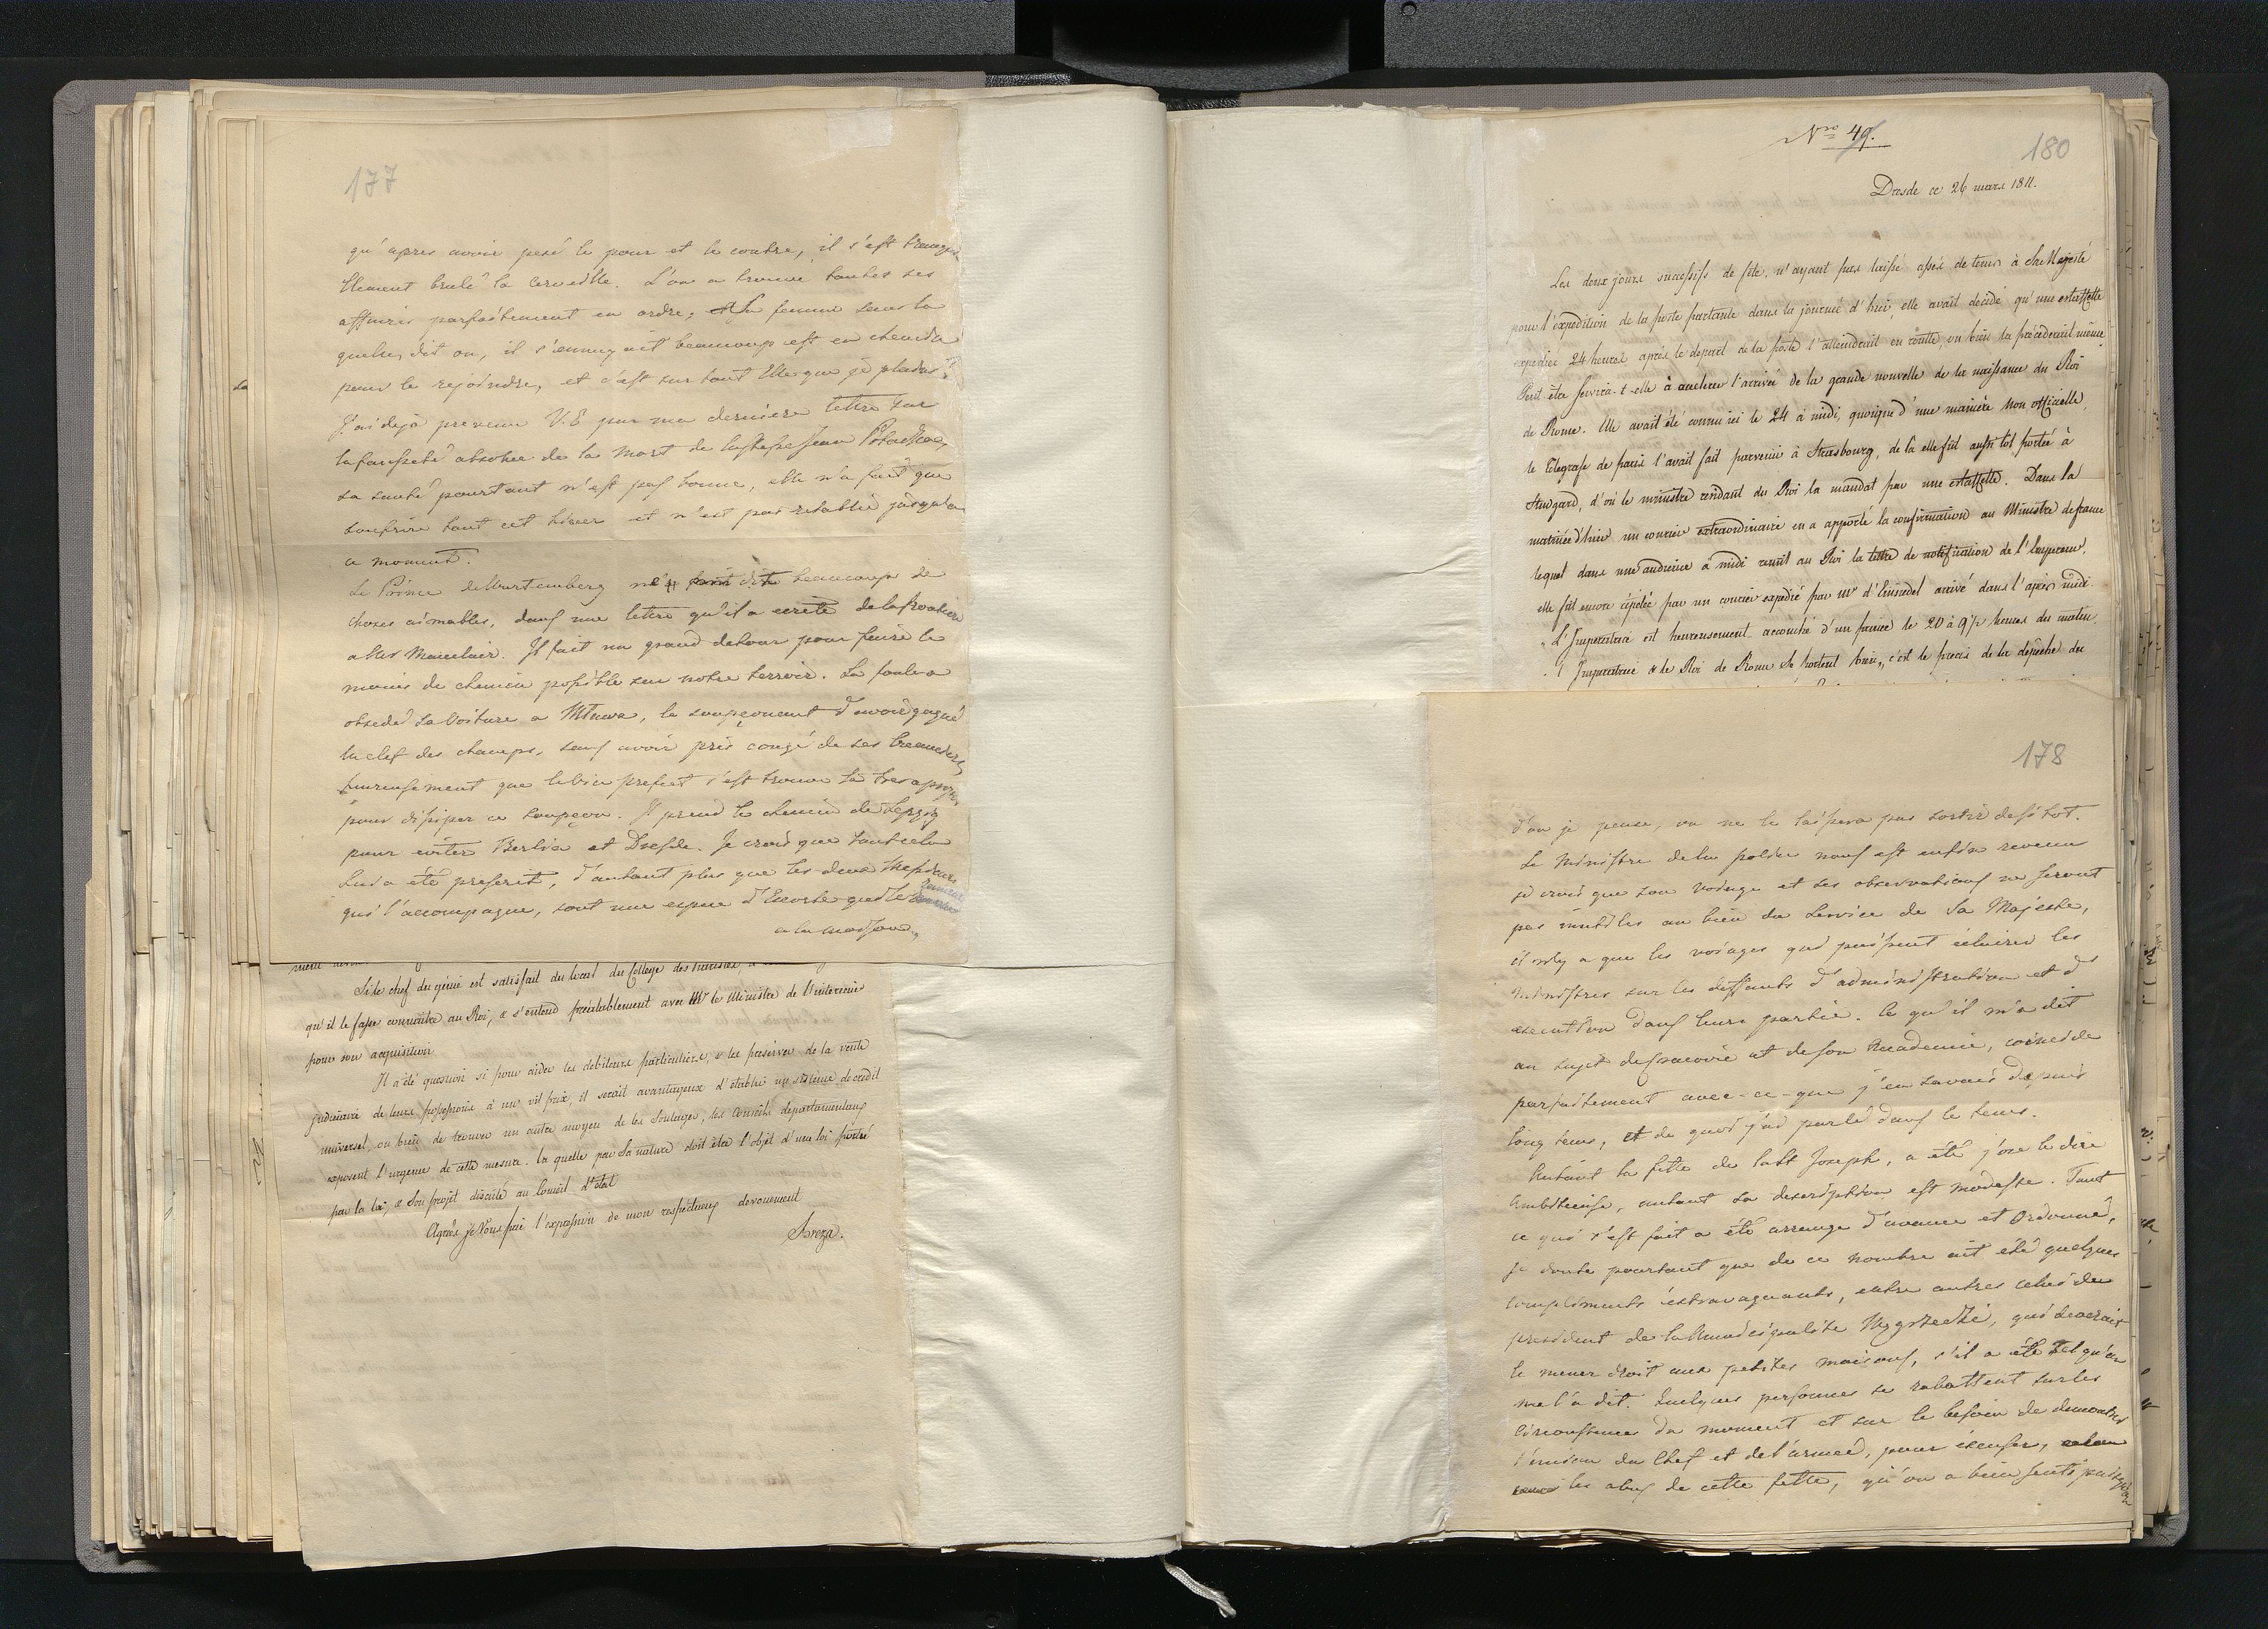 177
qu'apres avoir pesé le pour et le contre, il s'est tranqui
llement brulé la cervelle. L'on a trouvé toutes ses
affaires parfaitement en ordre, sa femme sans la
quelle, dit on, il s'ennuyait beaucoup est en chemin
pour le rejoindre, et c'est sur tout Elle que je plains.
J'ai deja prevenu V.E par ma derniere lettre sur
la fausseté absolue de la Mort de Jean Potocki
sa santé pourtant n'est pas bonne, elle n'a fait que
souffrire tout cet hiver et n'est pas retablie jusqu'a
ce moment.
Le Prince de Wurtemberg dit beaucoup de
choses aimables, dans une lettre qu'il a ecrite de la frontiere
Il fait un grand detour pour faire le
moins de chemin possible sur notre terroir. La foule a
obsedé sa Voiture a Mlawa, le soupçonnant d'avoir gagné
la clef des champs, sans avoir pris congé de ses
heureusement que le s'est trouvé là
pour dissiper ce soupçon. Il prend le chemin de Lepzig
pour eviter Berlin et Dresde. Je crois que tout cela
lui a été prescrit, d'autant plus que les deux Messieurs
qui l'accompagne, sont une espece d'Escorte
a la maison.
Si le chef du génie est satisfait du local du College des Piaristes,
qu'il le fasse connaitre au Roi, & s'entend préalablement avec Mr le Ministre de l'interieur
pour son acquisition
Il a été question si pour aider les debiteurs particuliers, & les preserver de la vente
judiciaire de leurs possessions à un vil prix, il serait avantageux d'etablir un sisteme de credit
universel, ou bien de trouver un autre moyen de les soulager, les conseils departementaux
exposent l'urgence de cette mesure. la quelle par sa nature doit être l'objet d'une loi portée
par la loi, & son projet discuté au Conseil d'état
Agréez je Vous prie l'expression de mon respectueux devouement
Breza.
Nro 49.
180
Dresde ce 26 mars 1811.
Les deux jours successifs de fête, n'ayant pas laissé assez de tems à Sa Majesté
pour l'expedition de la poste partante dans la journée d'hier, elle avait decidé qu'une estaffette
expediée 24 heures après le depart de la poste l'atteindrait en route, ou bien la précéderait même
Peut être servira-t-elle à accelerer l'arrivée de la grande nouvelle de la naissance du Roi
de Rome. Elle avait été connue ici le 24 à midi, quoique d'une manière non officielle,
le telegrafe de paris l'avait fait parvenir à Strasbourg, de là elle fut aussitôt portée à
Studgard, d'où le ministre residant du Roi la mandat par une estaffette. Dans la
matinée d'hier un courier extraordinaire en a apporté la confirmation au Ministre de france
lequel dans une audience à midi remit au Roi la lettre de notification de l'Empereur,
elle fut encore répétée par un courier expedié par Mr d'Einsiedel arrivé dans l'après midi.
„ L'Imperatrice est heureusement accouchée d'un prince le 20 à 9½ heures du matin,
„ l'Imperatrice & le Roi de Rome se portent bien„ c'est le precis de la dépêche du
178
d'ou je pense, on ne le laissera pas sortir de sitot.
Le Ministre de la police nous est enfin revenu
je crois que son voiage et ses observations ne seront
pas inutiles au bien du service de Sa Majesté,
il n'y a que les voiages qui puissent éclairer les
Ministres sur les deffauts d'administration et d'
execution dans leurs partie. Ce qu'il m'a dit
au sujet de Cracovie et de son Academie, coincide
parfaitement avec-ce-que j'en savais depuis
long tems, et de quoi j'ai parlé dans le tems.
Autant la fette de la St Joseph, a été j'ose le dire
ambitieuse, autant sa description est modeste. Tout
ce qui s'est fait a été arrangé d'avance et ordonné,
je doute pourtant que de ce nombre ait été quelques
compliments extravagants, entre autres celui du
president de la Municipalite Wygrzecki, qui devrait
le mener droit aux petites maisons, s'il a été tel qu'on
me l'a dit. Quelques personnes se rabattent sur les
circonstances du moment et sur le besoin de demontrer
l'union du Chef et de l'armée, pour excuser,
les abus de cette fette, qu'on a bien senti